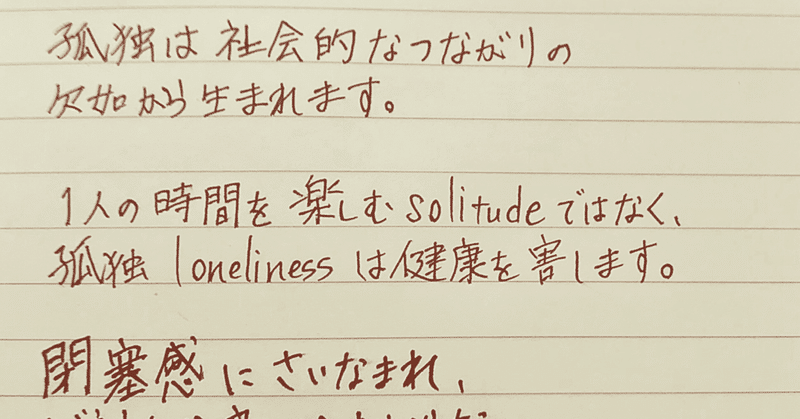 孤独は社会的なつながりの
欠如から生まれます。
1人の時間を楽しむsolitudeではなく、
孤独 lonelinessは健康を害します。
閉塞感にさいなまれ、